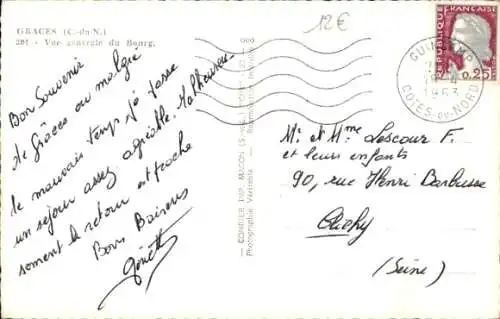 GRACES (C.-du-N.)
281 - Vue générale du Bourg.
12€
Bon Souvenir
de Grâces ou malgré
le mauvais temps je passe
un séjour assez agréable. Malheureu-
sement le retour est proche
Bons Baisers
COMBIER IMP. MACON (S.-&-L.)
Photographie Véritable
REPUBLIQUE FRANÇAISE
0,25
GUINGAMP
1963
COTES-DU-NORD
Mr et Mme Lescour F.
et leurs enfants
90, rue Henri Barbusse
Clichy
(Seine)